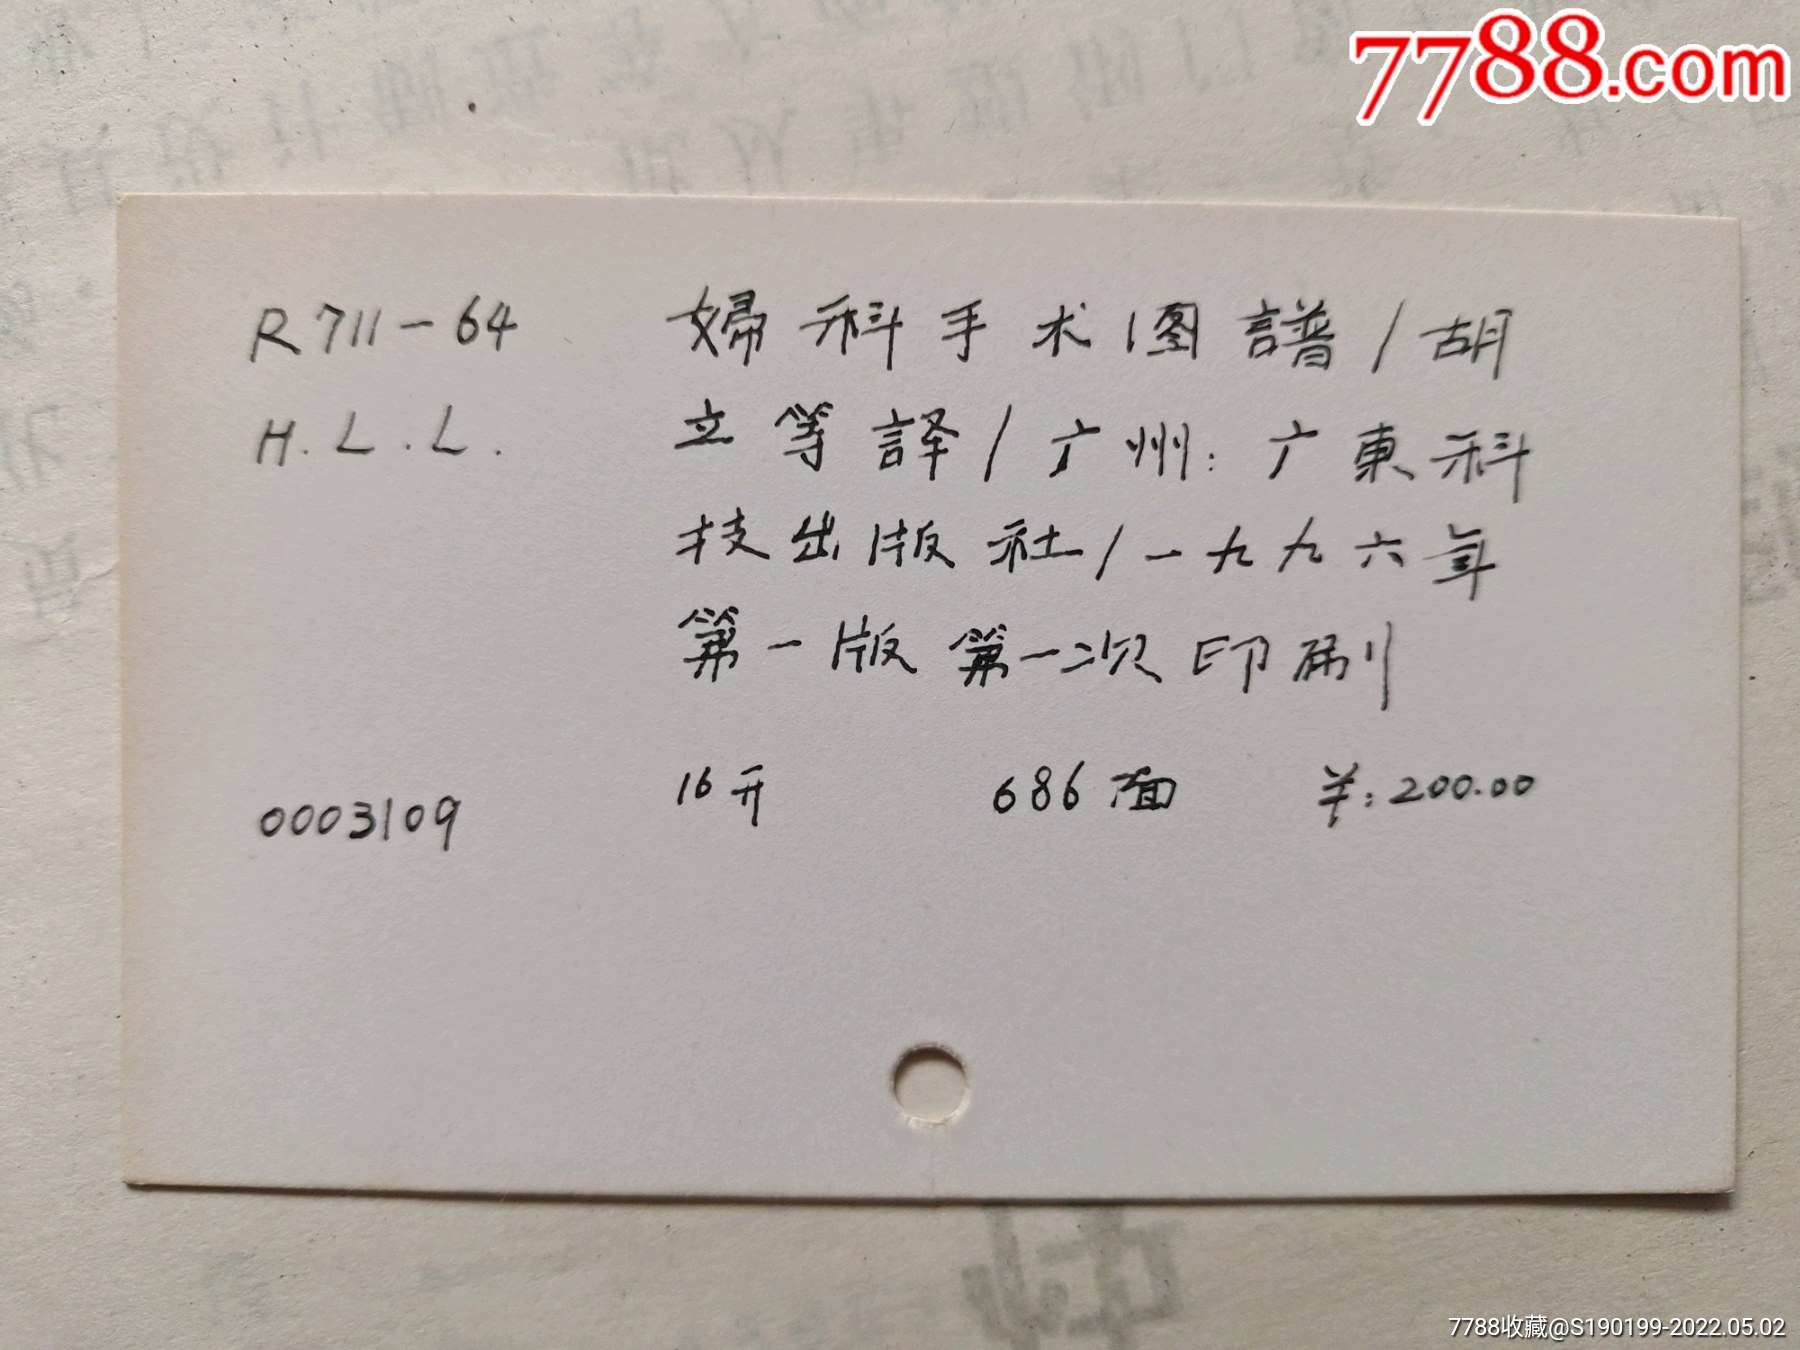 7788.com
R711-64 婦科手术图譜/胡
H.L.L. 立等譯/广州:广東科
技出版社/一九九六年
第一版第一次印刷
0003109 16开 686面 羊:200.00
7788收藏@S190199-2022.05.02